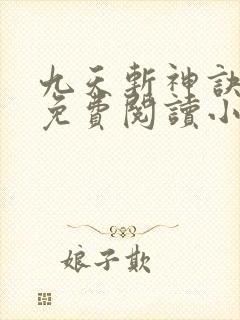 九天斬神訣
免費閱讀小
娘子欺